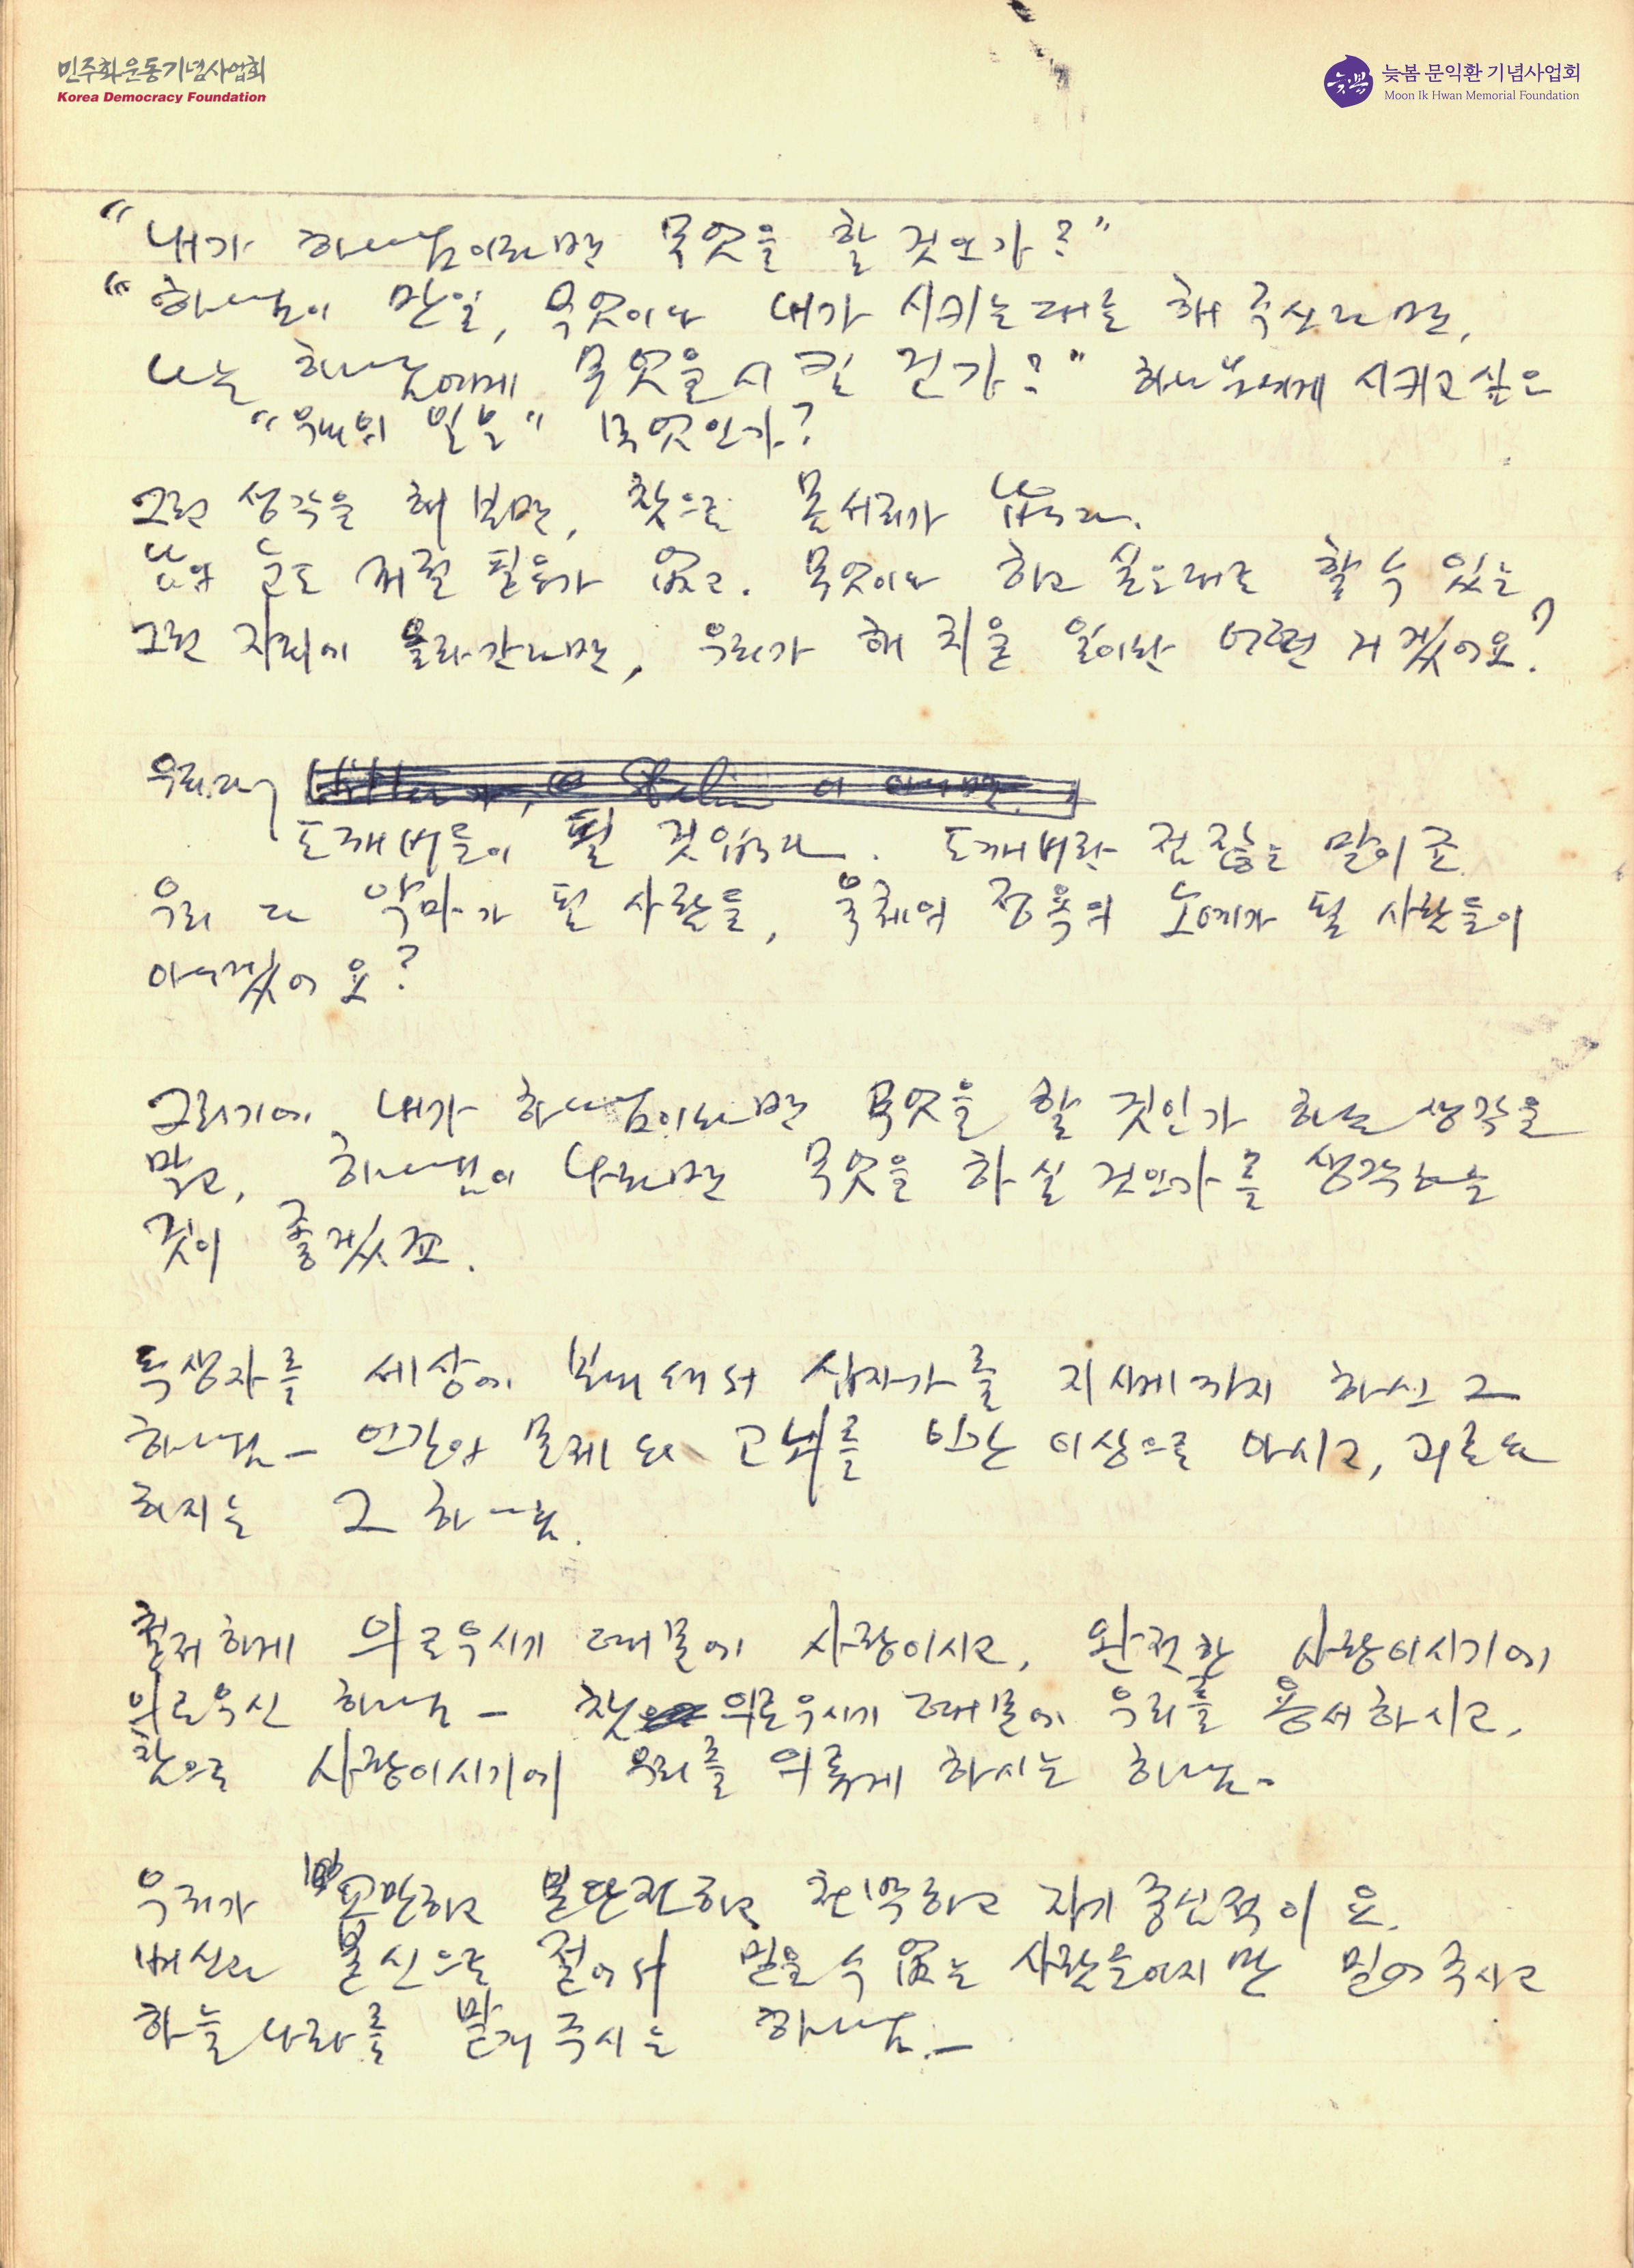 민주화운동기념사업회
Korea Democracy Foundation
늦봄
늦봄 문익환 기념사업회
Moon Ik Hwan Memorial Foundation
"내가 하나님이라면 무엇을 할 것인가?"
"하나님이 만일, 무엇이나 내가 시키는대로 해 주신다면,
나는 하나님에게 무엇을 시킬 건가?" 하나님에게 시키고 싶은
일은" 무엇인가?
그런 생각을 해 보면, 참으로 몸서리가 납니다.
남의 눈도 꺼릴 필요가 없고. 무엇이나 하고 싶은대로 할 수 있는
그런 자리에 올라간다면, 우리가 해 치울 일이란 어떤 거겠어요?
우리 다
도깨비들이 될 것입니다. 도깨비란 점잖은 말이죠.
우리 다 악마가 될 사람들, 육체의 정욕의 노예가 될 사람들이
아니겠어요?
그러기에 내가 하나님이라면 무엇을 할 것인가 하는 생각을
말고, 하나님이 나라면 무엇을 하실 것인가를 생각하는
것이 좋겠죠.
독생자를 세상에 보내셔서 십자가를 지시게까지 하신 그
하나님 - 인간의 문제와 고뇌를 인간 이상으로 아시고, 괴로워
하시는 그 하나님.
철저하게 의로우시기 때문에 사랑이시고, 완전한 사랑이시기에
의로우신 하나님 - 참 의로우시기 때문에 우리를 용서하시고,
참으로 사랑이시기에 우리를 의롭게 하시는 하나님 -
우리가 교만하고 불완전하고 천박하고 자기 중심적이요.
배신과 불신으로 절어서 믿을 수 없는 사람들이지만 믿어 주시고
하늘 나라를 맡겨 주시는 하나님. -